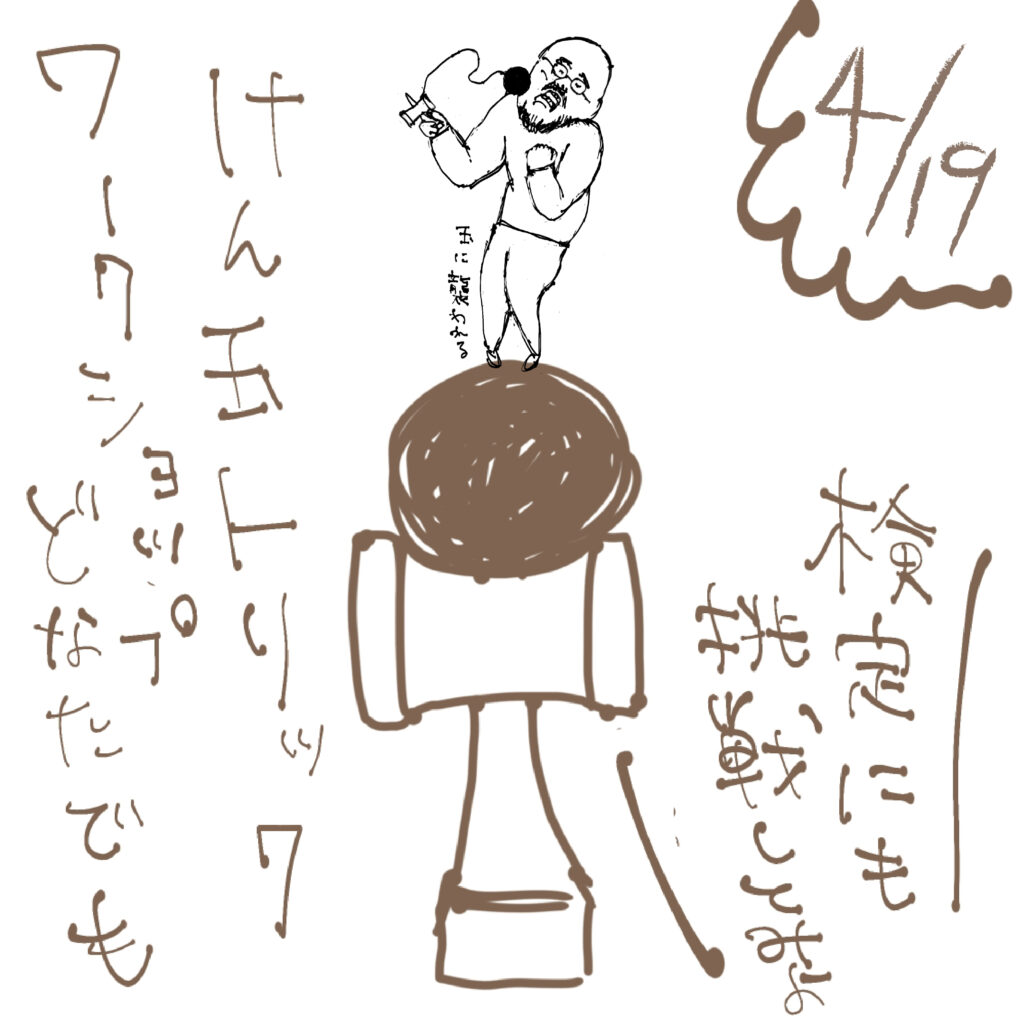 4/19
検定にも
挑戦しとおよ
玉に襲われる
けん玉トリック
ワークショップ
どなたでも